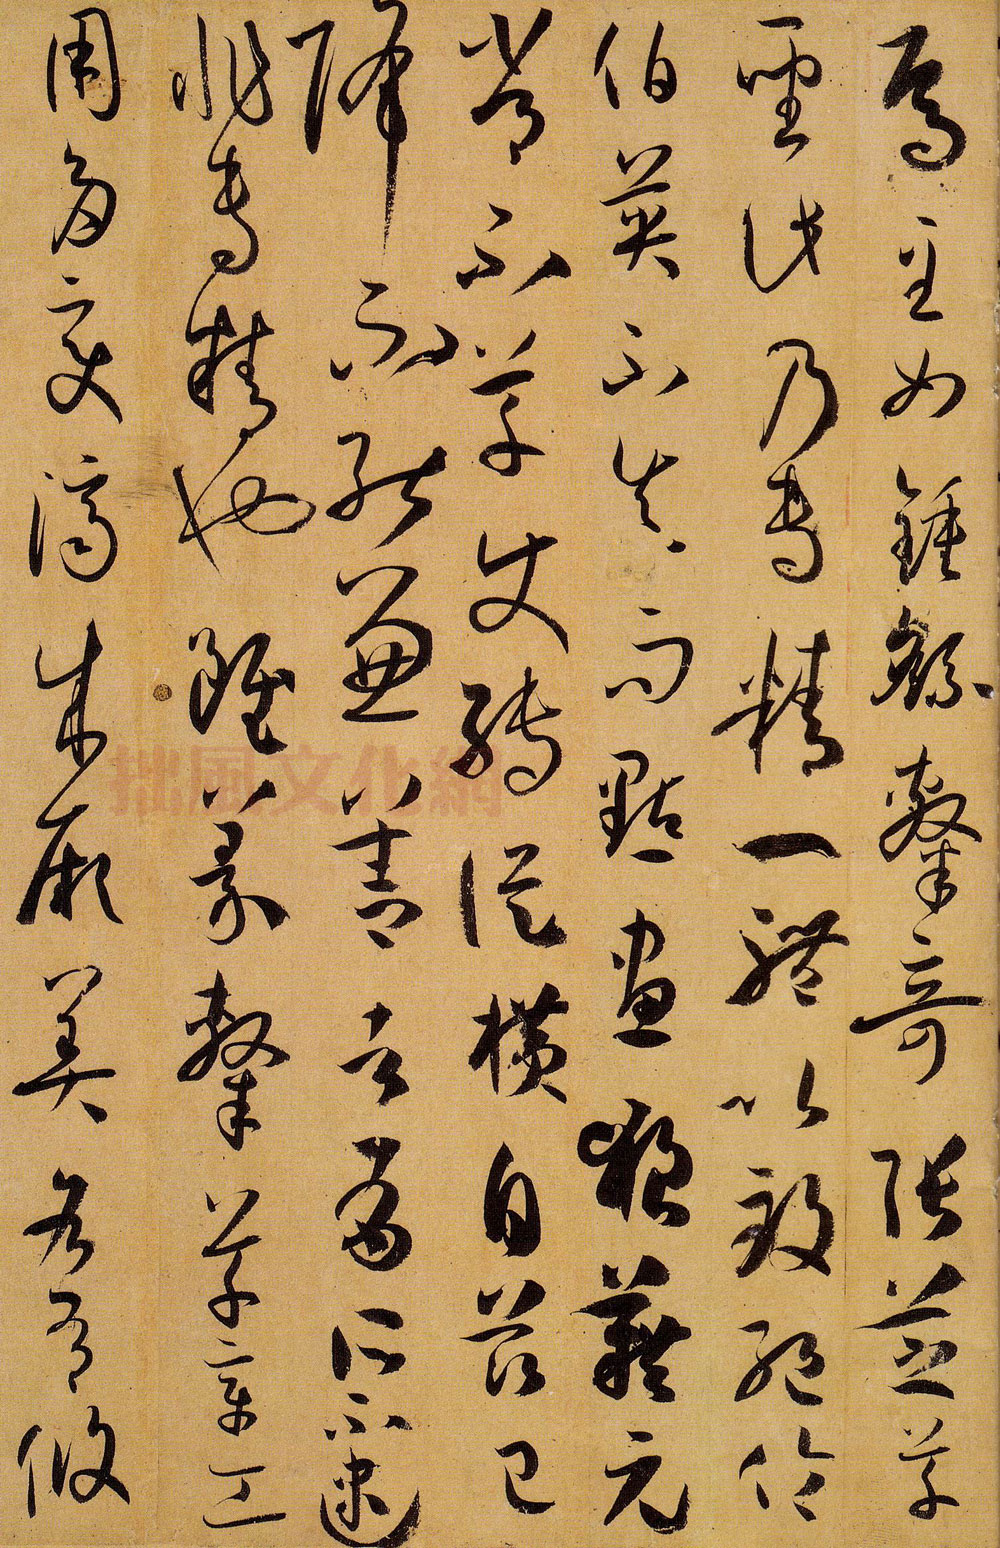 焉至如鍾繇隸奇張芝草
聖此乃專精一體以致絕倫
伯英不真而點畫狼藉元
常不草使轉縱橫自茲已
降不能兼善者有所不逮
非專精也雖篆隸草章工
用多變濟成厥美各有攸
拙風文化網